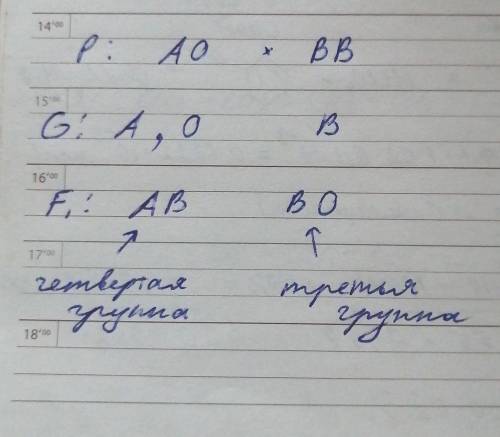 14⁰⁰
P: AO × BB
15⁰⁰
G: A, O B
16⁰⁰
F₁: AB BO
17⁰⁰
↗ ↑
четвертая третья
группа группа
18⁰⁰